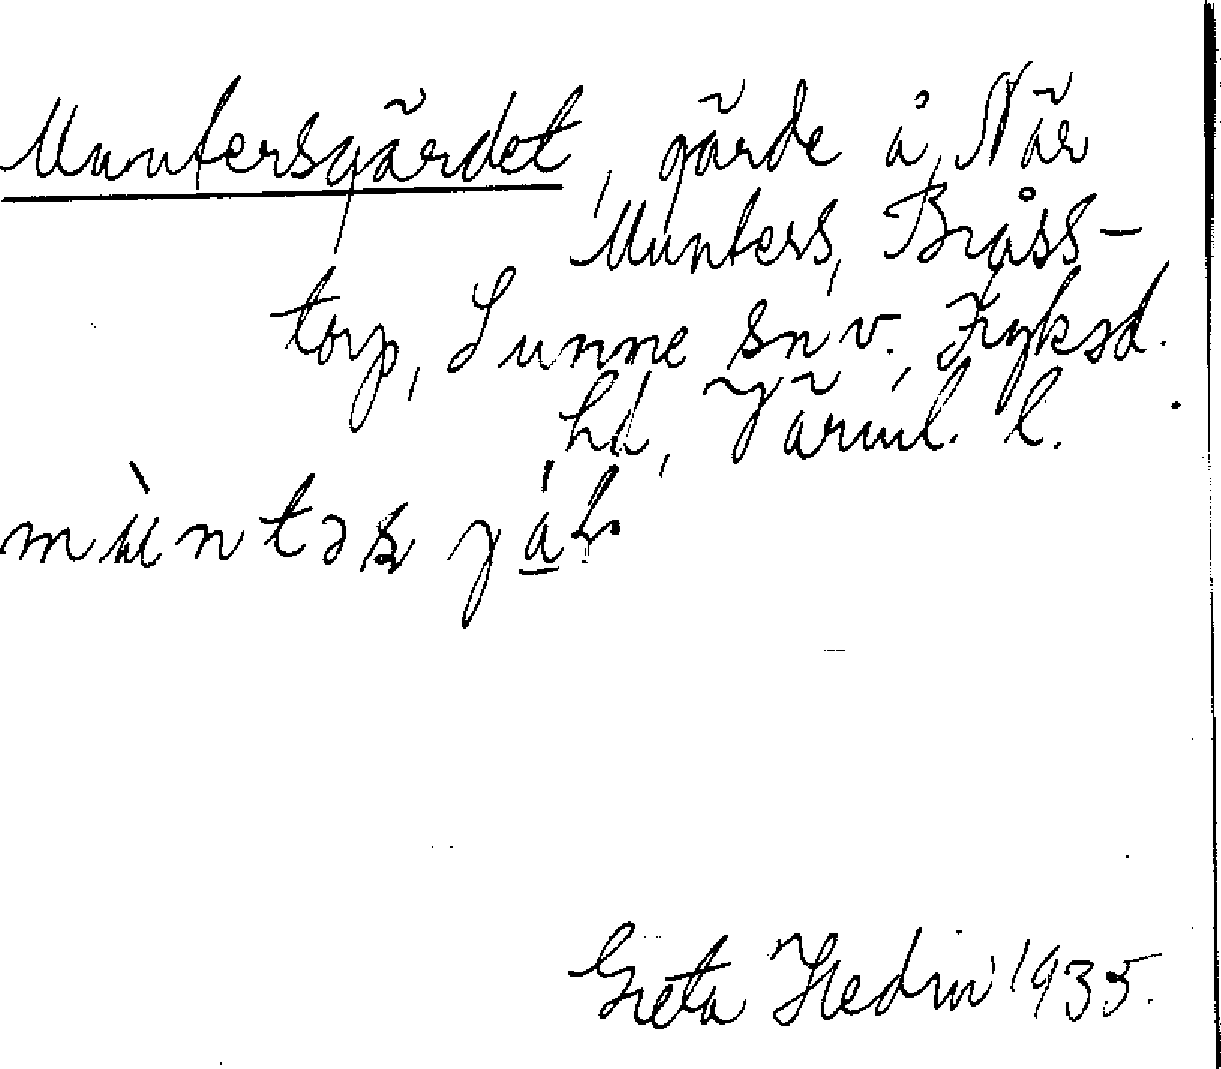 Muntersgärdet, gärde å När
Munters, Bråss-
torp, Sunne sn v. Fryksd.
hd, Värml. l.
mùntəs jáḷ
Greta Hedin 1935.